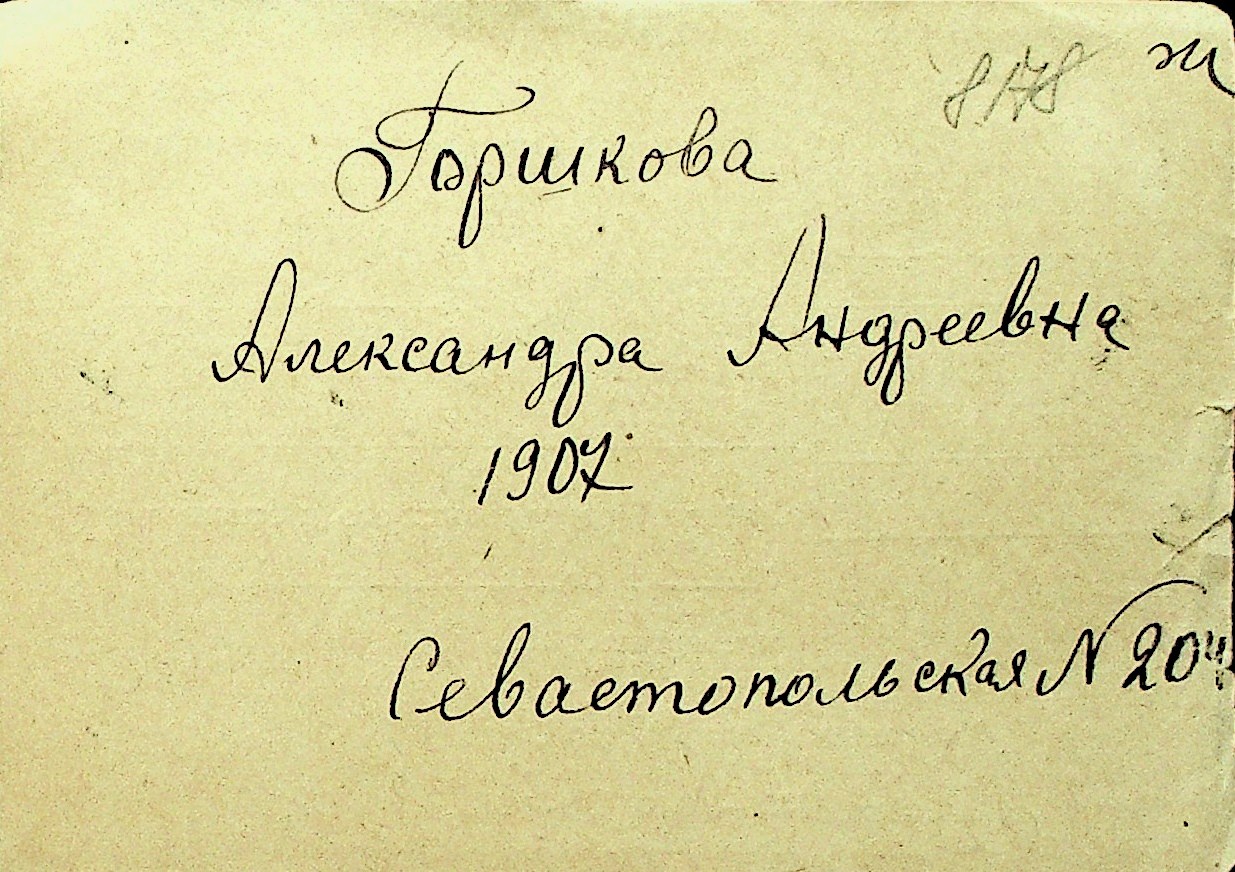 8178 ж
Горшкова
Александра Андреевна
1907
Севастопольская № 204